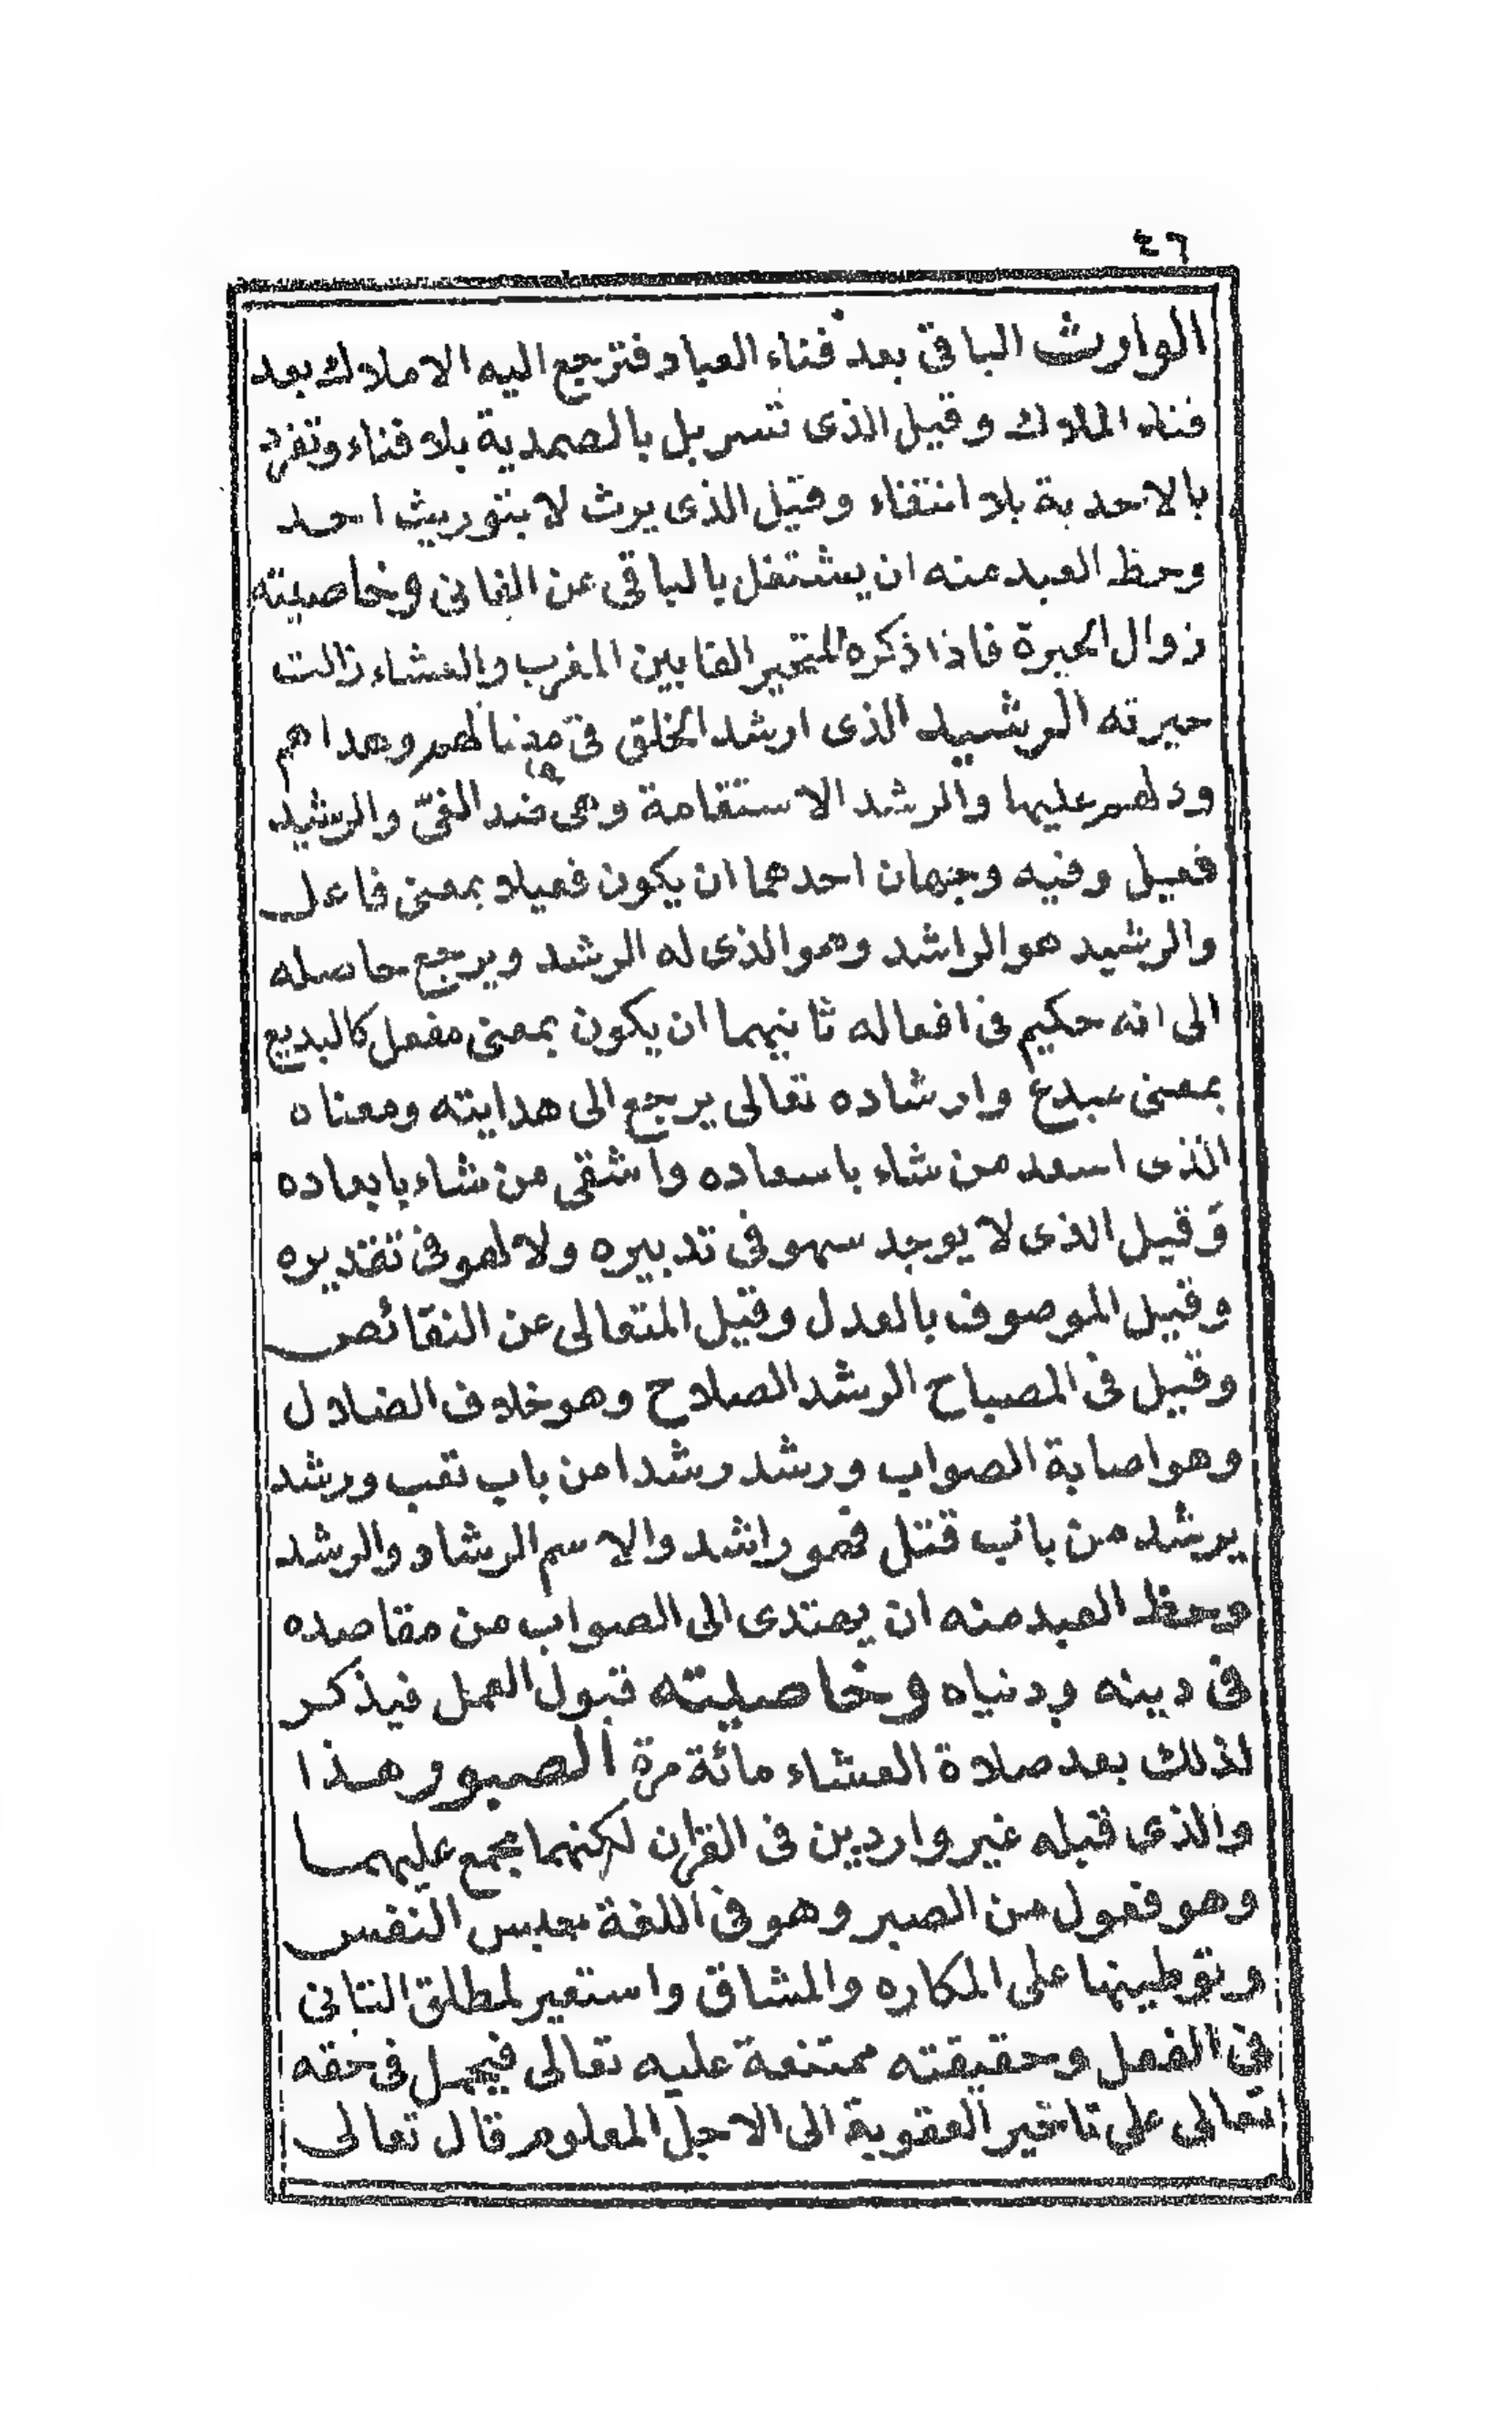 ٤٦
الوارث الباقى بعد فناء العباد فترجع اليه الاملاك بعد
فناء الملاك وقيل الذى تسربل بالصمدية بلا فناء وتفرد
بالاحدية بلا انتفاء وقيل الذى يرث لا بتوريث احد
وحظ العبد منه ان يشتغل بالباقي عن الفانى وخاصيته
زوال الحيرة فاذا ذكره المتحير الفا بين المغرب والعشاء زالت
حيرته الرشيد الذى ارشد الخلق فى لهم وهداهم
ودلهم عليها والرشد الاستقامة وهى ضد الغىّ والرشيد
فعيل وفيه وجهان احدهما ان يكون فعيلا بمعنى فاعل
والرشيد هو الراشد وهو الذى له الرشد ويرجع حاصله
الى انه حكيم فى افعاله ثانيهما ان يكون بمعنى مفعل كالبديع
بمعنى مبدع وارشاده تعالى يرجع الى هدايته ومعناه
الذى اسعد من شاء باسعاده واشقى من شاء بابعاده
وقيل الذى لا يوجد سهو فى تدبيره ولا لهو فى تقديره
وقيل الموصوف بالعدل وقيل المتعالى عن النقائص
وقيل فى المصباح الرشد الصلاح وهو خلاف الضلال
وهو اصابة الصواب ورشد رشدا من باب تعب ورشد
يرشد من باب قتل فهو راشد والاسم الرشاد والرشد
وحظ العبد منه ان يهتدى الى الصواب من مقاصده
فى دينه ودنياه وخاصيته قبول العمل فيذكر
لذلك بعد صلاة العشاء مائة مرة الصبور هذا
والذى قبله غير واردين فى القرآن لكنهما مجمع عليهما
وهو فعول من الصبر وهو فى اللغة حبس النفس
وتوطينها على المكاره والمشاق واستعير لمطلق التانى
فى الفعل وحقيقته ممتنعة عليه تعالى فيحمل فى حقه
تعالى على تاخير العقوبة الى الاجل المعلوم قال تعالى